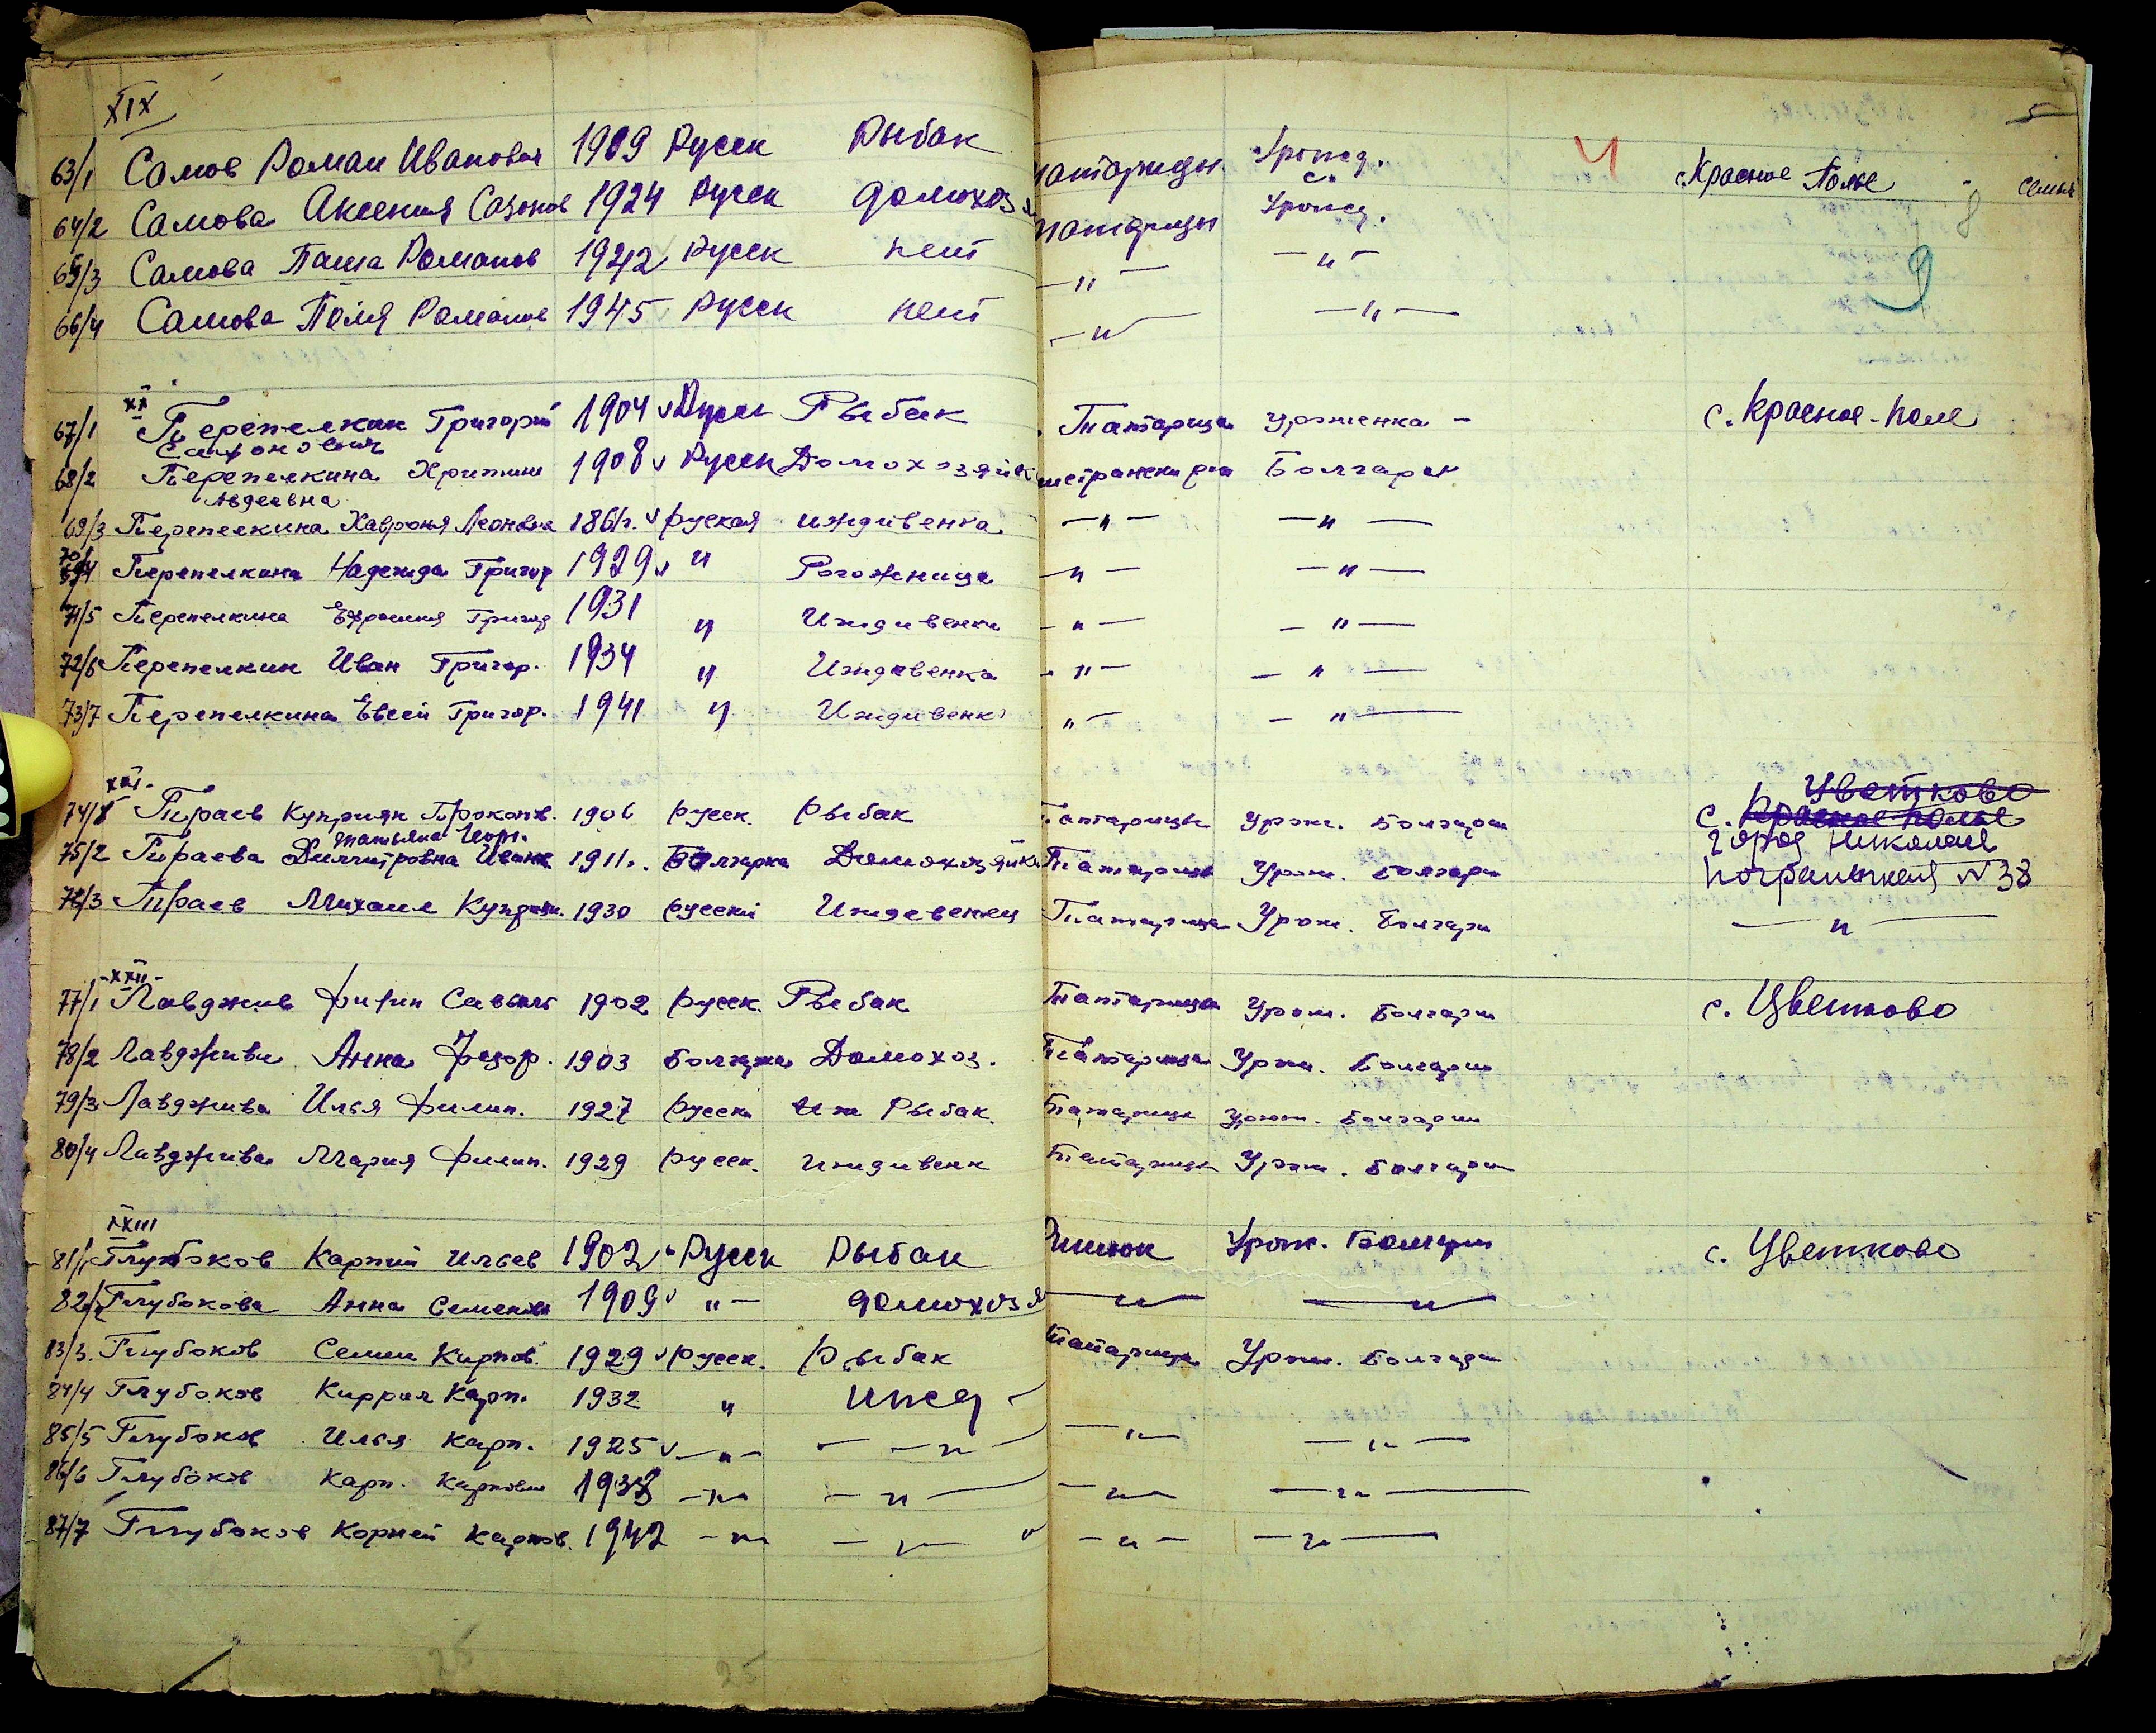 XIX 5
63/1 Самов Роман Иванович 1909 Русск Рыбак Татарицы Урожд. с. Красное Полье семья
64/2 Самова Аксения Сазонов 1924 Русск домохоз Татарицы Урожд.
65/3 Самова Паша Романов 1942 Русск нет — " — — " —
66/4 Самова Поля Романов 1945 Русск нет — " — — " —
4 9
XX
67/1 Перепелкин Григорий 1904 v Русск Рыбак Татарица урженка — с. Красное-поле
68/2 Перепелкина 1908 v Русск Домохозяйк Болгарии
Авдеевна
69/3 Перепелкина Хавронья Леоновна 186 г. v руская иждивенка — " — — " —
70/4 Перепелкина Надежда Григор 1929 v " Рогожница — " — — " —
71/5 Перепелкина Ефросиния Григор 1931 " Иждивенка — " — — " —
72/6 Перепелкин Иван Григор. 1934 " Иждивенка - " — — " —
73/7 Перепелкина Евсей Григор. 1941 " Иждивенк " — — " —
XXI. Цветково
74/1 Пираев Куприян Прокопв. 1906 русск. Рыбак Татарица Урож. Болгарии с. Красное полье
Татьяна город Николаев
75/2 Пираева Дмитровна 1911 г. Болгарка Домохозяйка Татарица Урож. Болгари пограничная № 38
76/3 Пираев Михаил Куприян. 1930 русский Иждевенец Татарица Урож. Болгари — " —
-XXII-
77/1 Лавджив Филип Савель 1902 русск. Рыбак Татарица Урож. Болгарии с. Цветково
78/2 Лавджива Анна Федор. 1903 болгарка Домохоз. Татарица Урж. Болгарии
79/3 Лавджива Илья Филип. 1927 русски Рыбак. Татарица урож. Болгарии
80/4 Лавджива Мария Филип. 1929 русск. иждивенк Татарица Урж. Болгарии
XXIII
81/1 Глубоков Карпий Ильев 1902 v Русск Рыбак Урож. Болгари с. Цветково
82/2 Глубокова Анна Семенов 1909 v " — домохозя — " — — " —
83/3. Глубоков Семен Карпов. 1929 v русск. Рыбак Татарица Урж. Болгари
84/4 Глубоков Киррил Карп. 1932 " ижд —
85/5 Глубоков Илья Карп. 1925 v — " — — " — — " — — " —
86/6 Глубоков Карп. Карпович 1938 — " — — " — — " — — " —
87/7 Глубоков Корней Карпов. 1942 — " — — " — — " — — " —
25 25